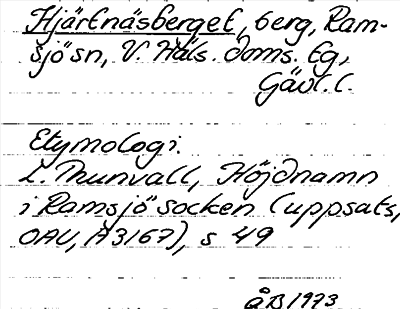 Hjärtnäsberget, berg, Ram-
sjösn, V. Häls. doms. tg,
Gävl. l.
Etymologi.
L. Thunvall, Höjdnamn
i Ramsjö socken (uppsats,
OAU, A3167), s 49
ÅB 1973